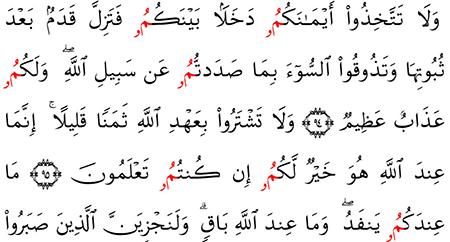 وَلَا تَتَّخِذُوٓا۟ أَيْمَٰنَكُمُۥ دَخَلَۢا بَيْنَكُمُۥ فَتَزِلَّ قَدَمٌۢ بَعْدَ
ثُبُوتِهَا وَتَذُوقُوا۟ ٱلسُّوٓءَ بِمَا صَدَدتُّمُۥ عَن سَبِيلِ ٱللَّهِ ۖ وَلَكُمُۥ
عَذَابٌ عَظِيمٌ ٩٤ وَلَا تَشْتَرُوا۟ بِعَهْدِ ٱللَّهِ ثَمَنًا قَلِيلًا ۚ إِنَّمَا
عِندَ ٱللَّهِ هُوَ خَيْرٌ لَّكُمُۥ إِن كُنتُمُۥ تَعْلَمُونَ ٩٥ مَا
عِندَكُمُۥ يَنفَدُ ۖ وَمَا عِندَ ٱللَّهِ بَاقٍ ۗ وَلَنَجْزِيَنَّ ٱلَّذِينَ صَبَرُوٓا۟